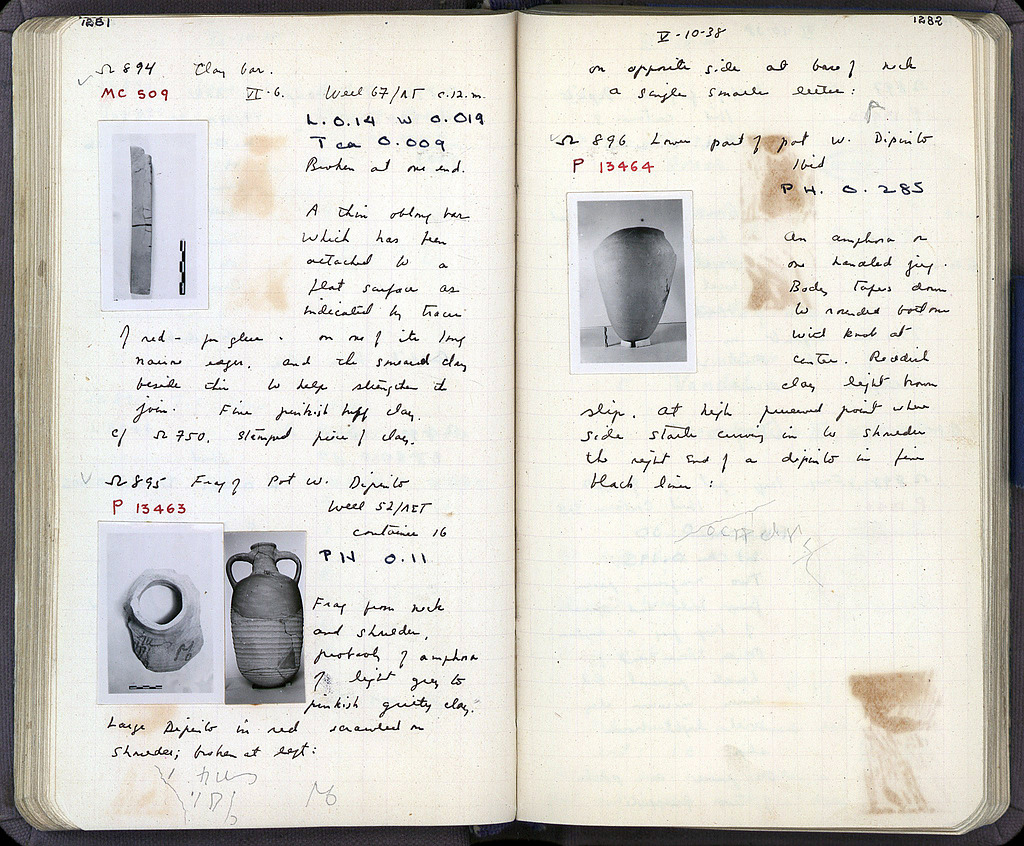 1281
Ω 894 Clay bar.
MC 509 VI·6. Well 67/ΛΤ c.12.m.
L. 0.14 W 0.019
T ca 0.009
Broken at one end.
A thin oblong bar
which has been
attached to a
flat surface as
indicated by traces
of red - for glue - on one of its long
narrow edges, and the smeared clay
beside this to help strengthen the
join. Fine pinkish buff clay.
cf Ω 750. Stamped piece of clay.
Ω 895 Frag of Pot w. Dipinto
P 13463 Well 52/ΛΣΤ
container 16
PH 0.11
Frag from neck
and shoulder,
probably of amphora
of light grey to
pinkish gritty clay.
Large Dipinto in red scrawled on
shoulder; broken at left:
1282
V-10-38
on opposite side at base of neck
a single smaller letter:
Ω 896 Lower part of pot w. Dipinto
P 13464 Ibid
PH. 0.285
An amphora or
one handled jug.
Body tapers down
to rounded bottom
with knob at
center. Reddish
clay light brown
slip. At high preserved point where
side starts curving in to shoulder
the right end of a dipinto in fine
black lines: